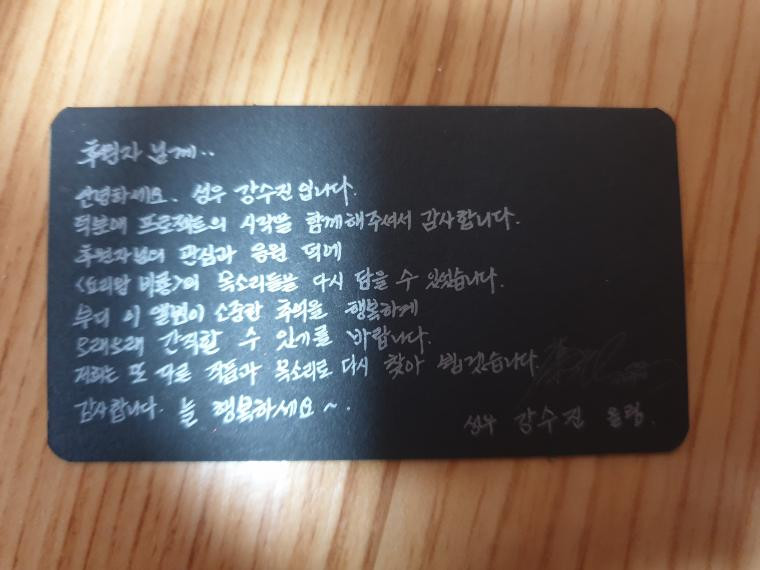 후원자 님께..
안녕하세요. 성우 강수진입니다.
덕분에 프로젝트의 시작을 함께해주셔서 감사합니다.
후원자님의 관심과 응원 덕에
<요리왕 비룡>의 목소리들을 다시 담을 수 있었습니다.
부디 이 앨범이 소중한 추억을 행복하게
오래오래 간직할 수 있기를 바랍니다.
저희는 또 다른 작품과 목소리로 다시 찾아 뵙겠습니다.
감사합니다. 늘 행복하세요~.
성우 강수진 올림.